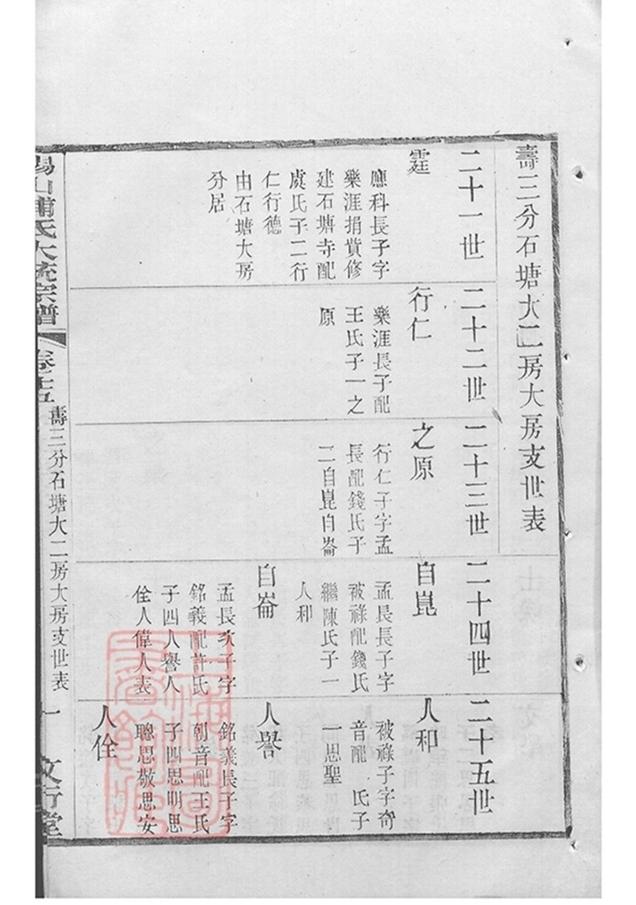 壽三分石塘大二房大房支世表
二十一世
霆
應科長子字
藥涯捐貲修
建石塘寺配
虞氏子二行
仁行德
由石塘大房
分居
二十二世
行仁
藥涯長子配
王氏子一之
原
二十三世
之原
行仁子字孟
長配錢氏子
二自崑自崙
二十四世
自崑
孟長長子字
被祿配錢氏
繼陳氏子一
人和
自崙
孟長次子字
銘義配許氏
子四人譽人
佺人偉人表
二十五世
人和
被祿子字奇
音配 氏子
一思聖
人譽
銘義長子字
朝音配王氏
子四思明思
聰思敬思安
人佺
錫山浦氏大統宗譜
卷之十五
壽三分石塘大二房大房支世表
一
文行堂